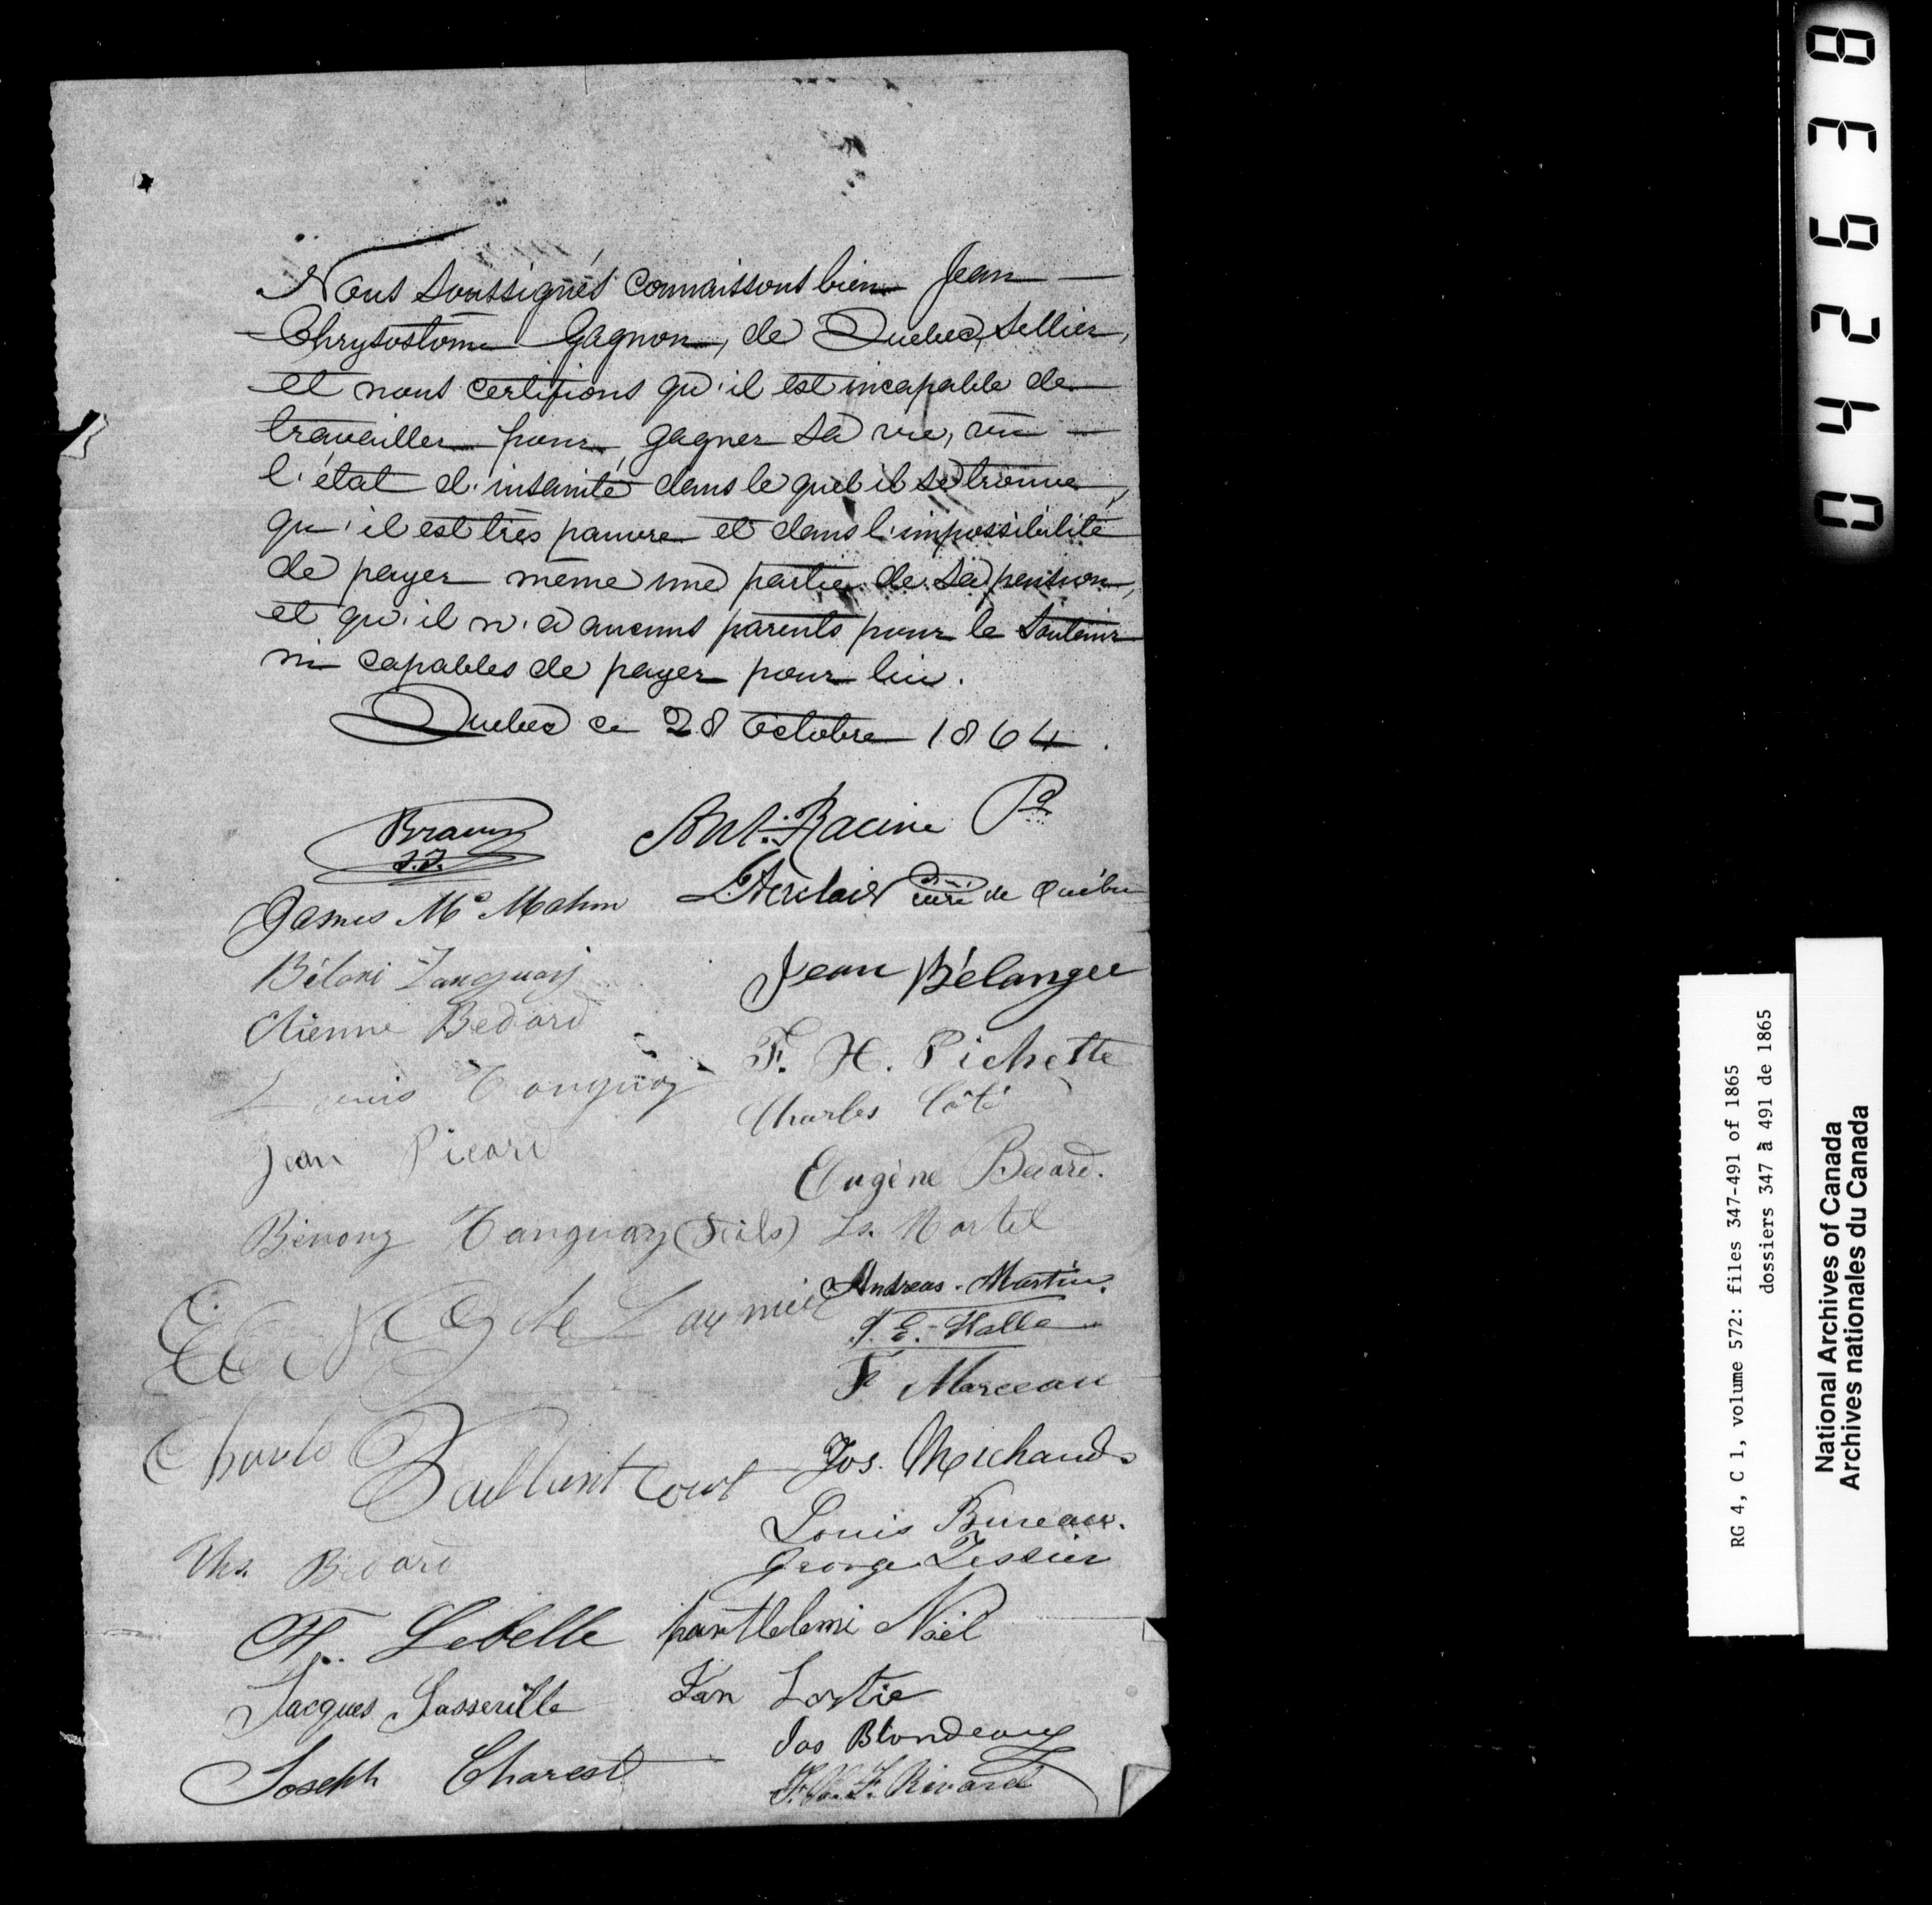 Nous soussignés connaissons bien Jean
Chrysostôme Gagnon, de Québec, sellier,
et nous certifions qu'il est incapable de
travailler pour gagner sa vie, vu
l'état d'insanité dans le quel il se trouve,
qu'il est très pauvre et dans l'impossibilité
de payer même une partie de sa pension,
et qu'il n'a aucuns parents pour le soutenir
ni capables de payer pour lui.
Québec ce 28 Octobre 1864.
Braun
S.J.
Ant. Racine Ptre
James McMahon
curé de Québec
Jean Bélanger
Tanguay
Etienne Bedard
F. H. Pichette
Louis Tanguay
Charles Côté
Jean Picard
Eugène Bedard.
Benony Tanguay (Fils)
Andreas Martin.
J. E. Halle
F Marceau
Jos. Michaud
Charles Vaillancourt
Louis Bureau.
George Tessier
Chs. Bedard
F. Lebelle
bartlelemi Noël
Jacques Lasserille
Lortie
Jos Blondeau
Joseph Charest
Rivard
042638
RG 4, C 1, volume 572: files 347-491 of 1865
dossiers 347 à 491 de 1865
National Archives of Canada
Archives nationales du Canada